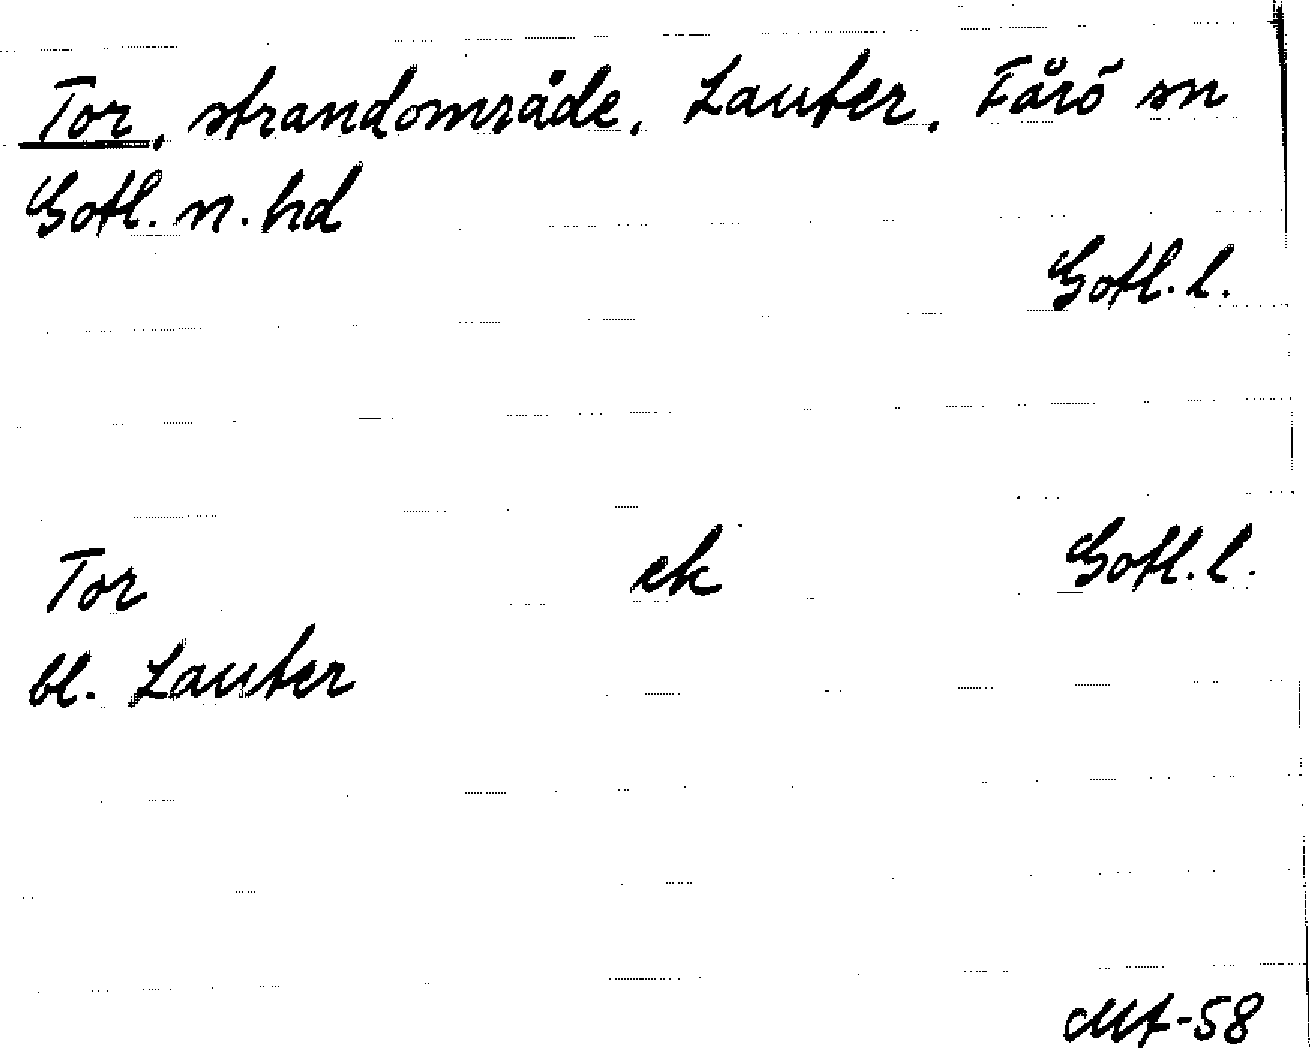 Tor, strandområde, Lauter, Fårö sn
Gotl. n. hd
Gotl. l.
Tor ek Gotl. l.
bl. Lauter
-58